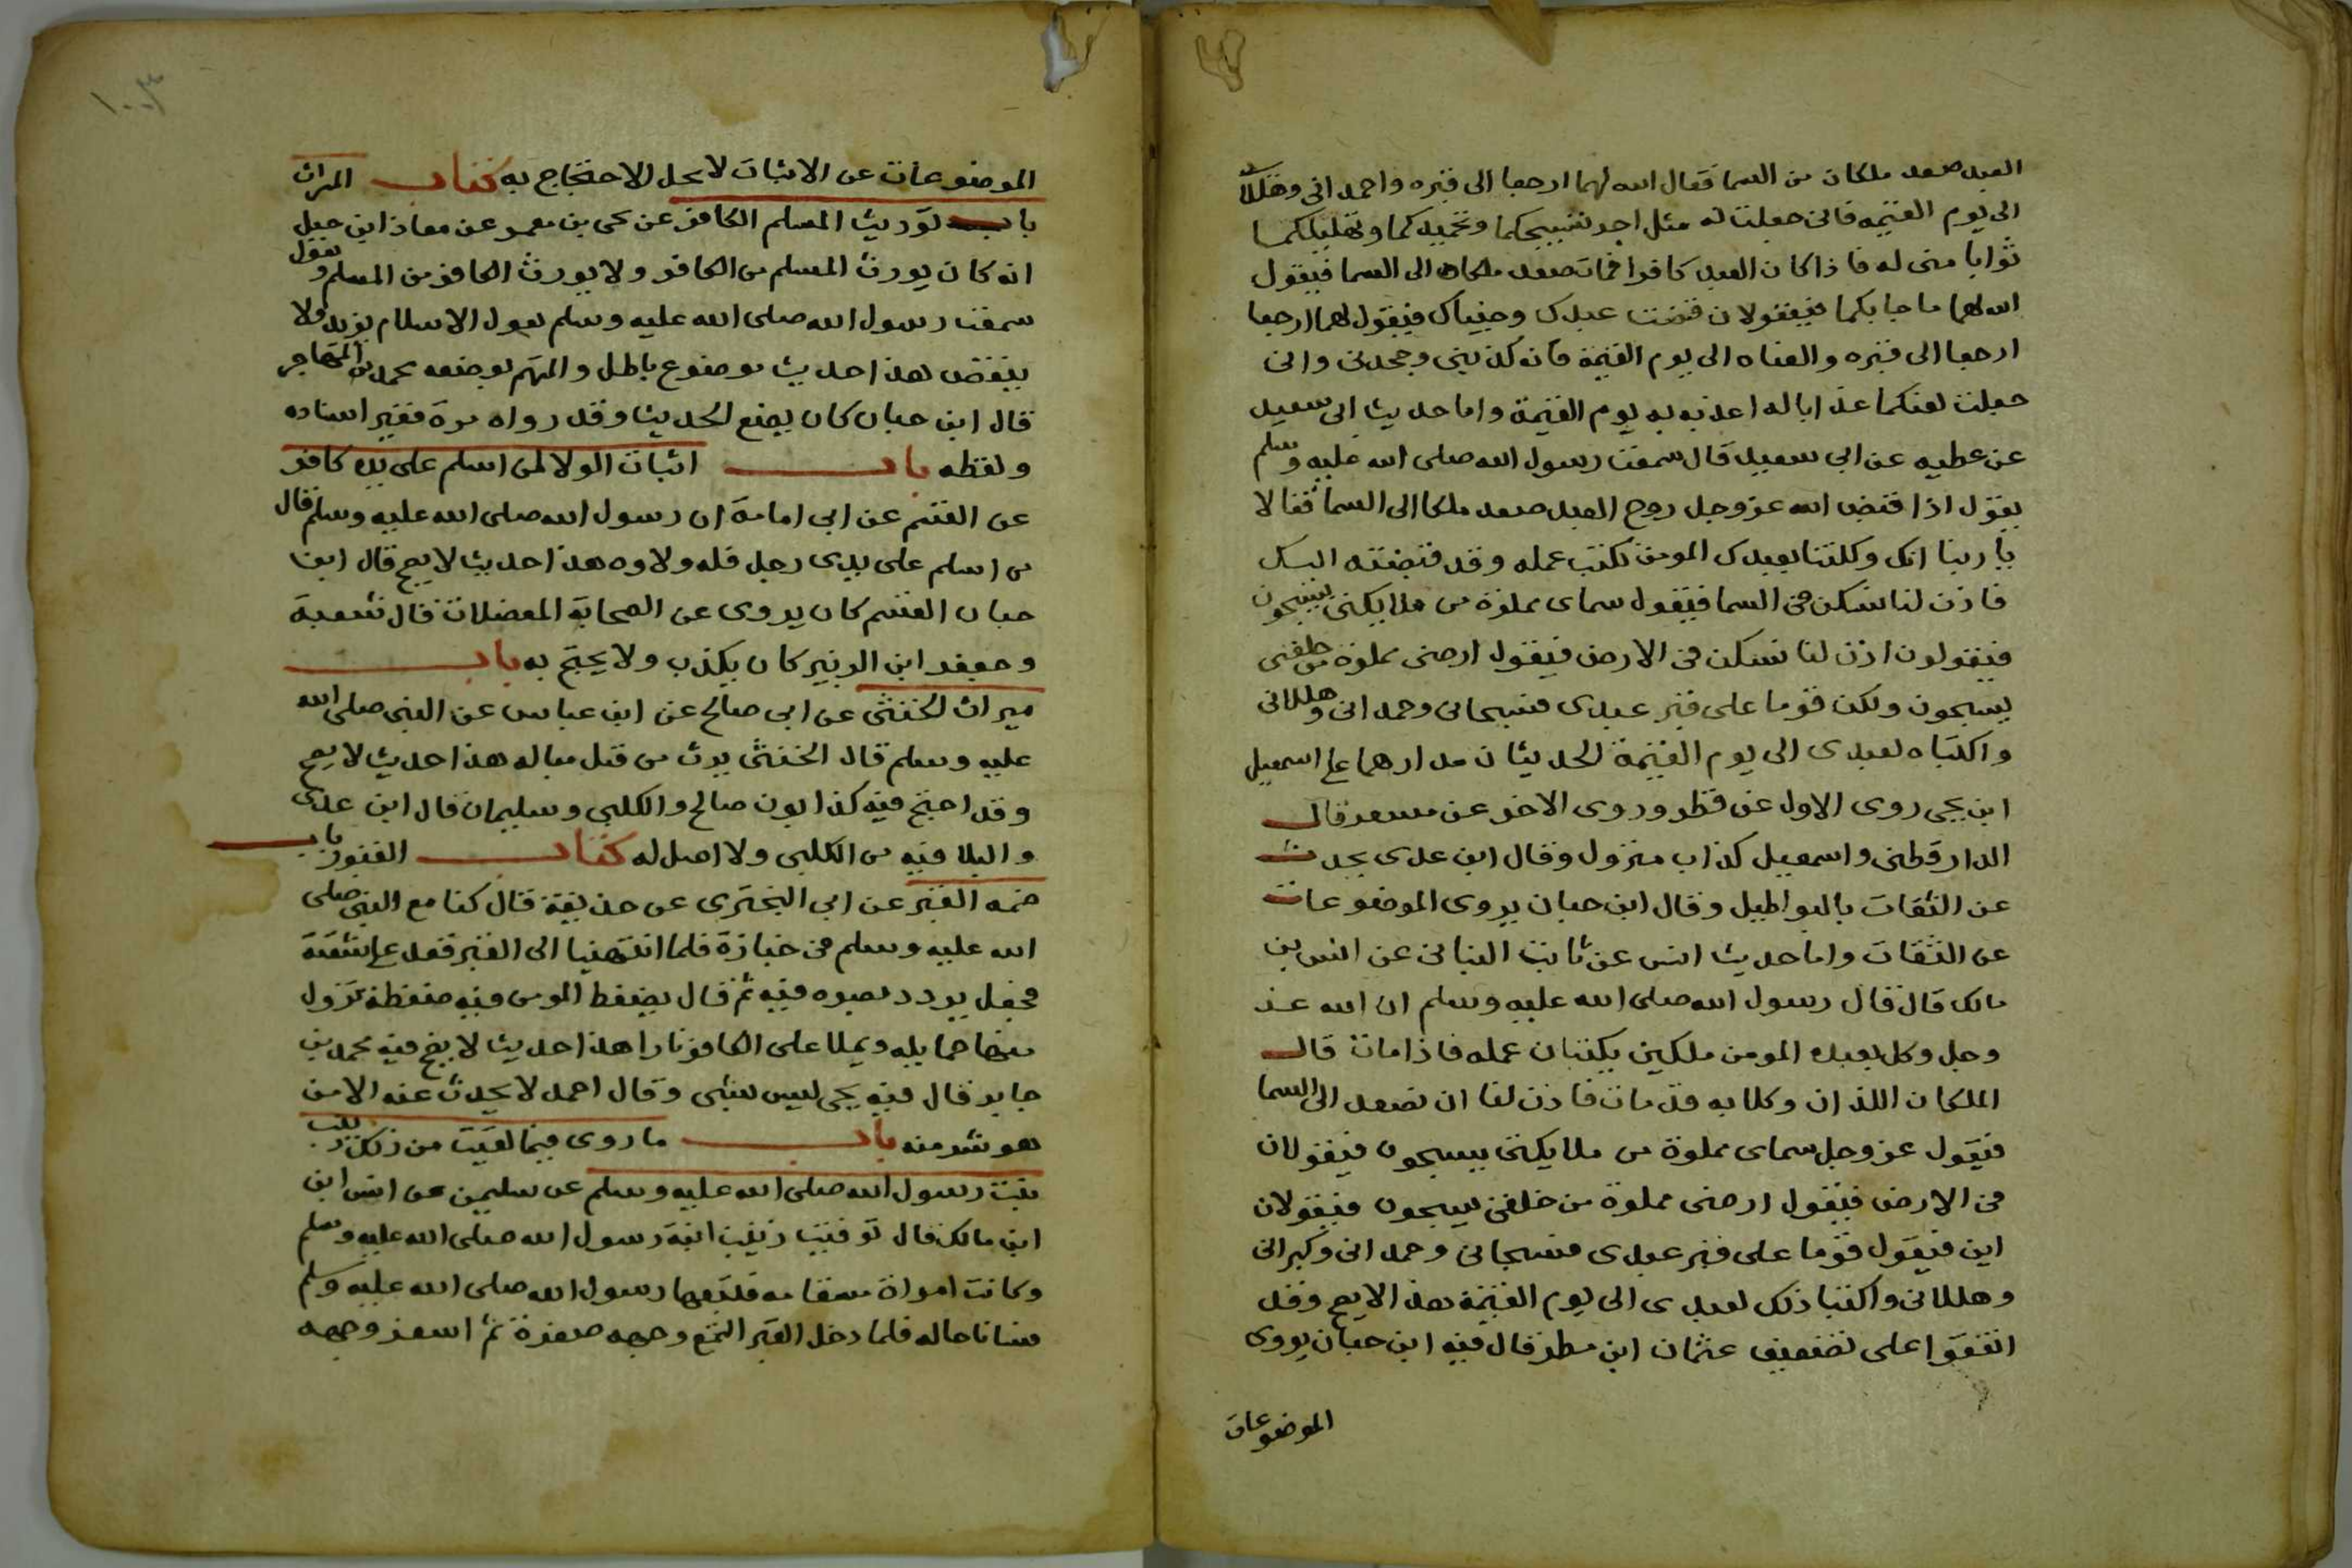 العبد صعد ملكان من السما فقال الله لهما ارجعا الى قبره واحمداني وهللاني
الى يوم القيمه فاني جعلت له مثل اجر تسبيحكما وتحميدكما وتهليلكما
ثوابا مني له فاذا كان العبد كافرا فمات صعد ملكاه الى السما فيقول
الله لهما ما جا بكما فيقولان قبضت عبدك وجيناك فيقول لهما ارجعا
ارجعا الى قبره والعناه الى يوم القيمة فانه كذبني وجحدني واني
جعلت لعنكما عذابا له اعذبه به يوم القيمة واما حديث ابي سعيد
عن عطيه عن ابي سعيد قال سمعت رسول الله صلى الله عليه وسلم
يقول اذا قبض الله عز وجل روح العبد صعد ملكا الى السما فقالا
يا ربنا انك وكلتنا بعبدك المومن نكتب عمله وقد قبضته اليك
فاذن لنا نسكن في السما فيقول سماى مملوة من ملايكتي يسبحون
فيقولون اذن لنا نسكن في الارض فيقول ارضي مملوة من خلقي
يسبحون ولكن قوما على قبر عبدى فسبحاني وحمداني وهللاني
واكتباه لعبدى الى يوم القيمة الحديثان مدارهما على اسمعيل
ابن يحيى روى الاول عن فطر وروى الاخر عن مسعر قال
الدارقطني واسمعيل كذاب متروك وقال ابن عدى يحدث
عن الثقات بالبواطيل وقال ابن حبان يروى الموضوعات
عن الثقات واما حديث انس عن ثابت البناني عن انس بن
مالك قال قال رسول الله صلى الله عليه وسلم ان الله عز
وجل وكل بعبده المومن ملكين يكتبان عمله فاذا مات قال
الملكان اللذان وكلا به قد مات فاذن لنا ان نصعد الى السما
فيقول عز وجل سماى مملوة من ملايكتي يسبحون فيقولان
في الارض فيقول ارضي مملوة من خلقي يسبحون فيقولان
اين فيقول قوما على قبر عبدى فسبحاني وحمداني وكبراني
وهللاني واكتبا ذلك لعبدى الى يوم القيمة هذا لا يصح وقد
اتفقوا على تضعيف عثمان ابن مطر قال فيه ابن حبان يروى
الموضوعات
الموضوعات عن الاثبات لا يحل الاحتجاج به كتاب الميراث
باب توريث المسلم الكافر عن يحى بن معمر عن معاذ ابن جبل
انه كان يورث المسلم من الكافر ولا يورث الكافر من المسلم ويقول
سمعت رسول الله صلى الله عليه وسلم يقول الاسلام يزيد ولا
ينقص هذا حديث موضوع باطل والمتهم بوضعه محمد بن المهاجر
قال ابن حبان كان يضع الحديث وقد رواه مرة فغير اسناده
ولفظه باب اثبات الولا لمن اسلم على يده كافر
عن القسم عن ابي امامة ان رسول الله صلى الله عليه وسلم قال
من اسلم على يدى رجل فله ولاوه هذا حديث لا يصح قال ابن
حبان القسم كان يروى عن الصحابة المعضلات قال شعبة
وجعفر ابن الزبير كان يكذب ولا يحتج به باب
ميراث الخنثى عن ابي صالح عن ابن عباس عن النبي صلى الله
عليه وسلم قال الخنثى يرث من قبل مباله هذا حديث لا يصح
وقد اجتمع فيه كذابون صالح والكلبي وسليمان قال ابن عدى
والبلا فيه من الكلبي ولا اصل له كتاب القبور باب
ضمه القبر عن ابي البخترى عن حذيفة قال كنا مع النبي صلى
الله عليه وسلم في جنازة فلما انتهينا الى القبر قعد على شفته
فجعل يردد بصره فيه ثم قال يضغط المومن فيه ضغطة تزول
منها حمايله ويملا على الكافر نارا هذا حديث لا يصح فيه محمد بن
جابر قال فيه يحى ليس بشى وقال احمد لا يحدث عنه الا من
هو شر منه باب ما روى فيما لقيت من ذلك زينب
بنت رسول الله صلى الله عليه وسلم عن سليمن عن انس ابن
ابن مالك قال توفيت زينب ابنة رسول الله صلى الله عليه وسلم
وكانت امراة مسقامه فتبعها رسول الله صلى الله عليه وسلم
فسانا حاله فلما دخل القبر التمع وجهه صفرة ثم اسفر وجهه